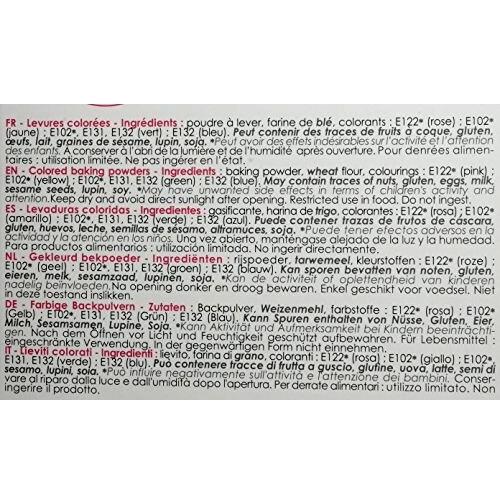 FR - Levures colorées - Ingrédients : poudre à lever, farine de blé, colorants : E122* (rose) ; E102*
(jaune) ; E102*, E131, E132 (vert) ; E132 (bleu). Peut contenir des traces de fruits à coque, gluten,
œufs, lait, graines de sésame, lupin, soja. *Peut avoir des effets indésirables sur l'activité et l'attention
des enfants. A conserver à l'abri de la lumière et de l'humidité après ouverture. Pour denrées alimen-
taires : utilisation limitée. Ne pas ingérer en l'état.
EN - Colored baking powders - Ingredients : baking powder, wheat flour, colourings : E122* (pink) ;
E102* (yellow) ; E102*, E131, E132 (green) ; E132 (blue). May contain traces of nuts, gluten, eggs, milk,
sesame seeds, lupin, soy. *May have unwanted side effects in terms of children's activity and
attention.Keep dry and avoid direct sunlight after opening. Restricted use in food. Do not ingest.
ES - Levaduras coloridas - Ingredientes : gasificante, harina de trigo, colorantes : E122* (rosa) ; E102*
(amarillo) ; E102*, E131, E132 (verde) ; E132 (azul). Puede contener trazas de frutos de cáscara,
gluten, huevos, leche, semillas de sésamo, altramuces, soja. *Puede tener efectos adversos en la
actividad y la atención en los niños. Una vez abierto, manténgase alejado de la luz y la humedad.
Para productos alimentarios : utilización limitada. No ingerir.
NL - Gekleurd bekpoeder - Ingrediënten : rijspoeder, tarwemeel, kleurstoffen : E122* (roze) ;
E102* (geel) ; E102*, E131, E132 (groen) ; E132 (blauw). Kan sporen bevatten van noten, gluten,
eieren, melk, sesamzaad, lupin, soja. *Kan de activiteit of oplettendheid van kinderen
nadelig beïnvloeden.Na opening donker en droog bewaren. Enkel geschikt voor voedsel. Niet in
deze toestand inslikken.
DE - Farbige Backpulvern - Zutaten : Backpulver, Weizenmehl, farbstoffe : E122* (rosa) ; E102*
(Gelb) ; E102*, E131, E132 (Grün) ; E132 (Blau). Kann Spuren enthalten von Nüsse, Gluten, Eier,
Milch, Sesamsamen, Lupine, Soja. *Kann Aktivität und Aufmerksamkeit bei Kindern beeinträch-
tigen. Nach dem Öffnen vor Licht und Feuchtigkeit geschützt aufbewahren. Für Lebensmittel :
eingeschränkte Verwendung. In der gegenwärtigen Form nicht einnehmen.
IT - Lieviti colorati - Ingredienti : lievito, farina di grano, coloranti : E122* (rosa) ; E102* (giallo) ; E102*,
E131, E132 (verde) ; E132 (blu). Può contenere tracce di frutta a guscio, glutine, uova, latte, semi di
sesamo, lupini, soia. *Può influire negativamente sull'attività e l'attenzione dei bambini. Conser-
vare al riparo dalla luce e dall'umidità dopo l'apertura. Per derrate alimentari : utilizzo limitato. Non
ingerire il prodotto.